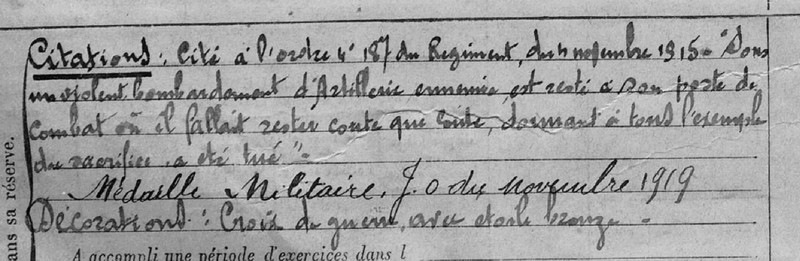 Citations : Cité à l'ordre n° 187 du Régiment, du 4 novembre 1915 - "Sous
un violent bombardement d'Artillerie ennemie, est resté à son poste de
combat où il fallait rester coute que coute, donnant à tous l'exemple
du sacrifice, a été tué" -
Médaille Militaire, J.O du novembre 1919
Décorations : Croix de guerre, avec étoile bronze -
ans sa réserve.
A accompli une période d'exercices dans l